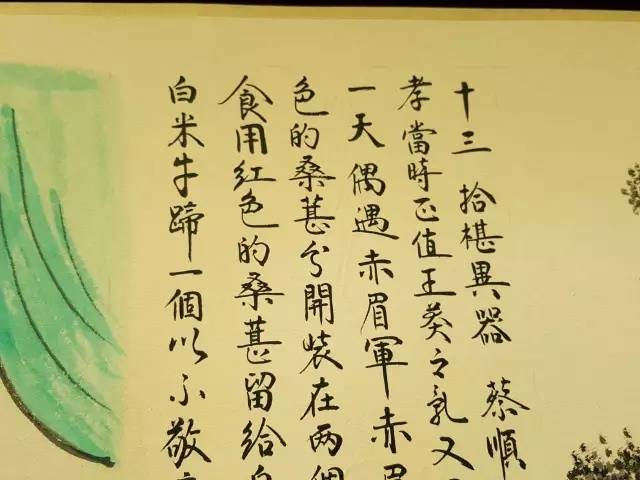 十三 拾椹異器 蔡順
孝當時正值王莽之乱又
一天偶遇赤眉軍赤眉
色的桑葚分開裝在两個
食用红色的桑葚留给
白米牛蹄一個以示敬